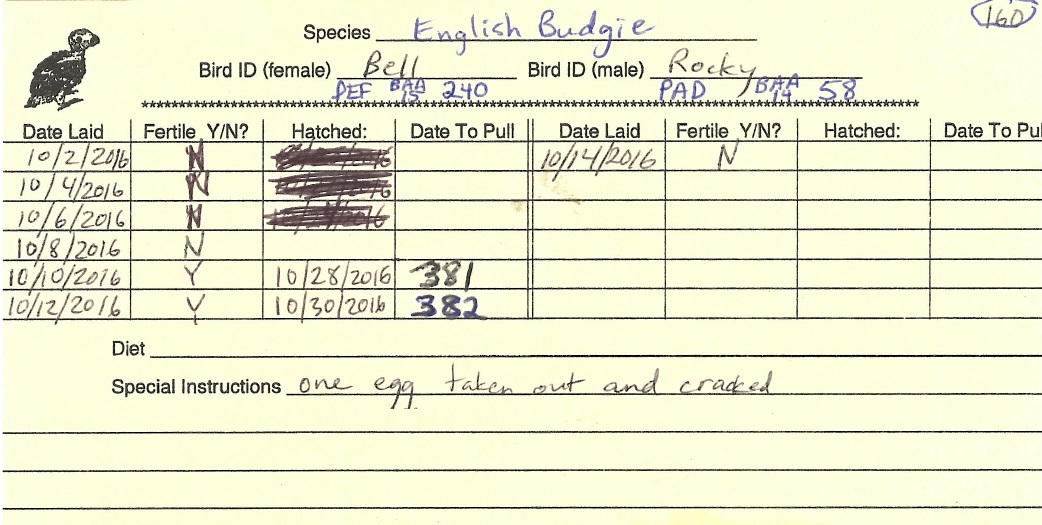 160
Species English Budgie
Bird ID (female) Bell Bird ID (male) Rocky
DEF BAA 15 240 PAD BAA 14 58
********************************************************************************
Date Laid Fertile Y/N? Hatched: Date To Pull Date Laid Fertile Y/N? Hatched: Date To Pul
10/2/2016 N 10/14/2016 N
10/4/2016 N
10/6/2016 N
10/8/2016 N
10/10/2016 Y 10/28/2016 381
10/12/2016 Y 10/30/2016 382
Diet
Special Instructions one egg taken out and cracked